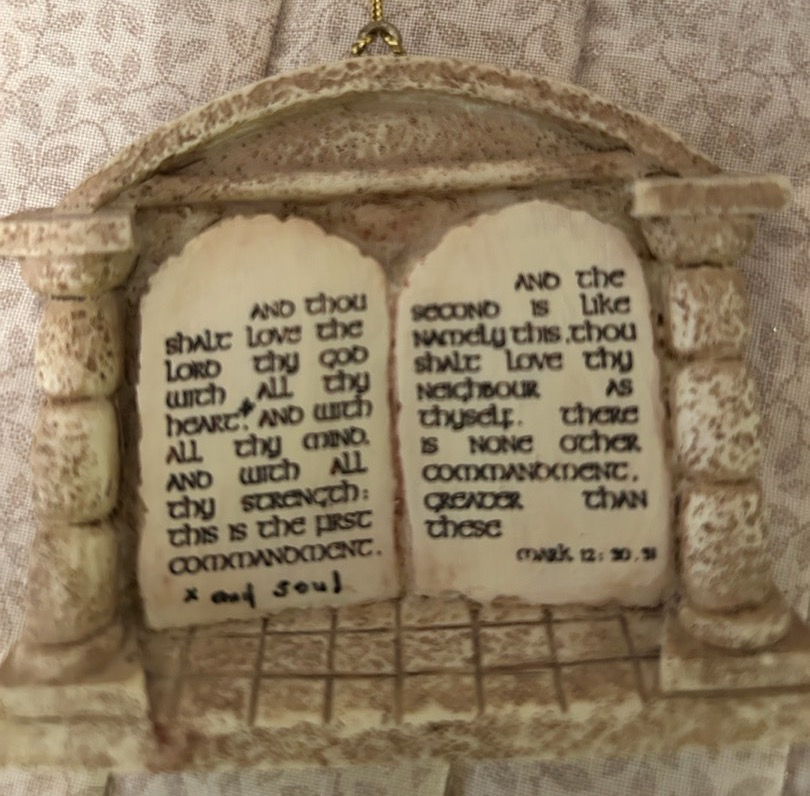 AND thou
shalt love the
LORD thy GOD
with ALL thy
heart.* AND with
ALL thy MIND.
AND with ALL
thy strength:
this is the first
commandment.
x and soul
AND the
second is like
namely this.thou
shalt love thy
neighbour as
thyself. there
is none other
commandment.
greater than
these
Mark 12: 30.31